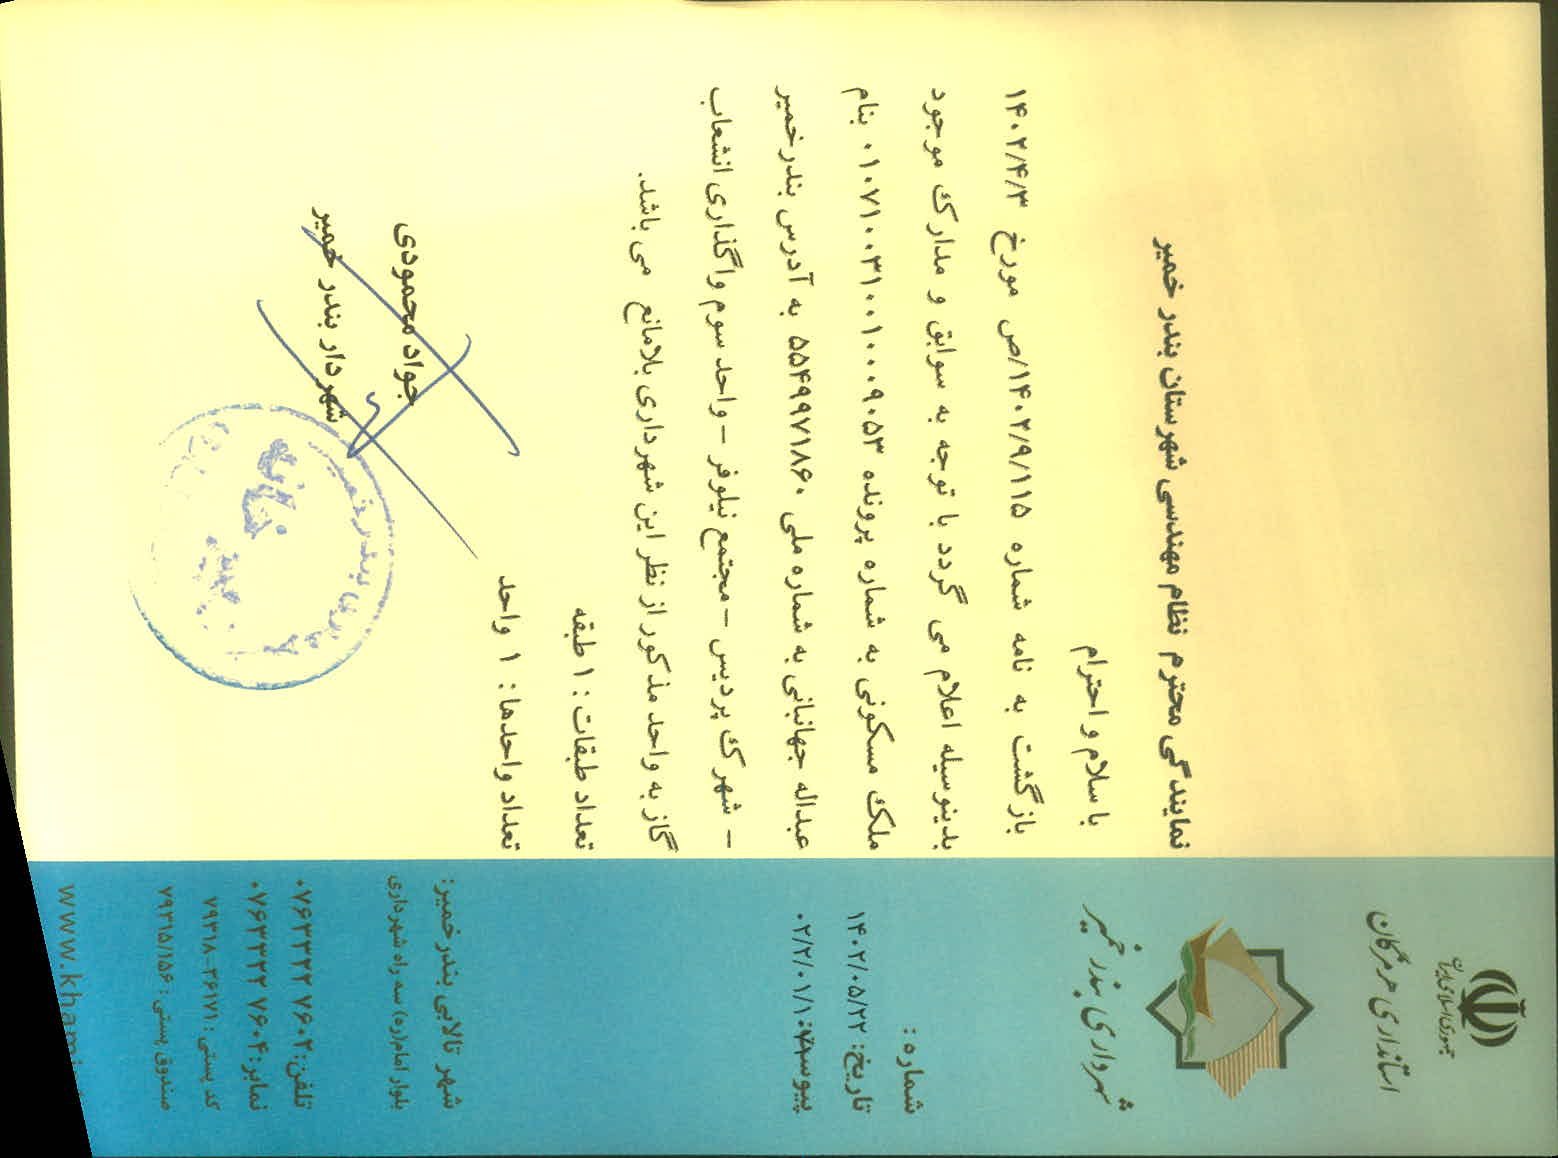 جمهوری اسلامی ایران
استانداری هرمزگان
شهرداری بندر خمیر
شماره:
تاریخ: ۱۴۰۲/۰۵/۲۲
پیوست:
شهر تالابی بندر خمیر:
بلوار امام(ره) سه راه شهرداری
تلفن: ۰۷۶۳۳۲۲ ۷۶۰۲
نمابر: ۰۷۶۳۳۲۲ ۷۶۰۴
کد پستی: ۲۶۱۷۱-۷۹۳۱۸
صندوق پستی: ۷۹۳۱۵/۱۵۶
www.kham
نمایندگی محترم نظام مهندسی شهرستان بندر خمیر
با سلام و احترام
بازگشت به نامه شماره ۱۴۰۲/۹/۱۱۵/ص مورخ ۱۴۰۲/۴/۳
بدینوسیله اعلام می گردد با توجه به سوابق و مدارک موجود
ملک مسکونی به شماره پرونده ۰۱۰۷۱۰۰۳۱۰۰۱۰۰۰۹۰۵۳ بنام
عبداله جهانبانی به شماره ملی ۵۵۴۹۹۷۱۸۶۰ به آدرس بندر خمیر
– شهرک پردیس – مجتمع نیلوفر – واحد سوم واگذاری انشعاب
گاز به واحد مذکور از نظر این شهرداری بلامانع می باشد.
تعداد طبقات : ۱ طبقه
تعداد واحدها : ۱ واحد
جواد محمودی
شهردار بندر خمیر